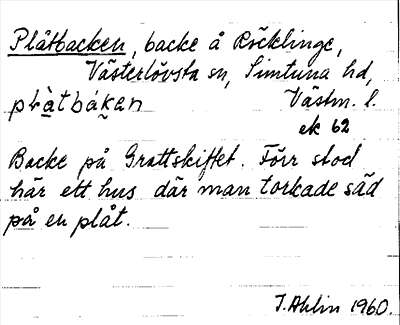 Plåtbacken, backe å Röcklinge,
Västerlövsta sn, Simtuna hd,
plà̀tbáken Västm. l.
ek 62
Backe på Grattskiftet. Förr stod
här ett hus där man torkade säd
på en plåt.
J. Ahlin 1960.